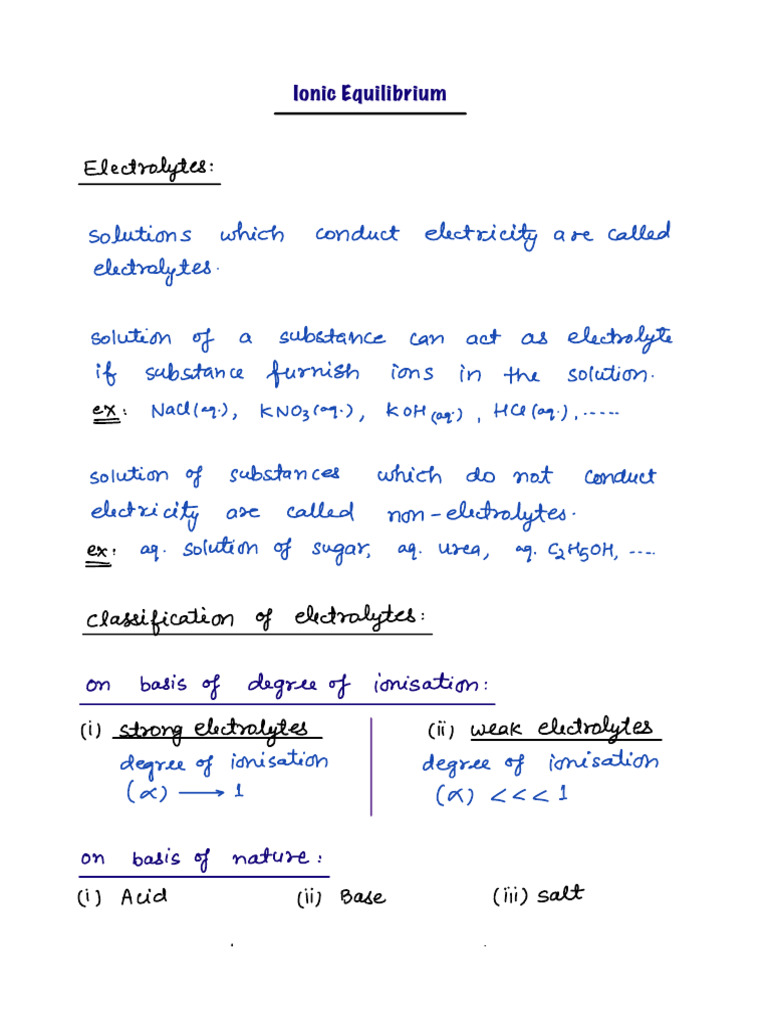 Ionic Equilibrium
Electrolytes:
solutions which conduct electricity are called
electrolytes.
solution of a substance can act as electrolyte
if substance furnish ions in the solution.
ex: NaCl(aq.), KNO3(aq.), KOH(aq.), HCl(aq.), .....
solution of substances which do not conduct
electricity are called non-electrolytes.
ex: aq. solution of sugar, aq. urea, aq. C2H5OH, ....
classification of electrolytes:
on basis of degree of ionisation:
(i) strong electrolytes (ii) weak electrolytes
degree of ionisation degree of ionisation
(α) ⟶ 1 (α) <<< 1
on basis of nature:
(i) Acid (ii) Base (iii) salt